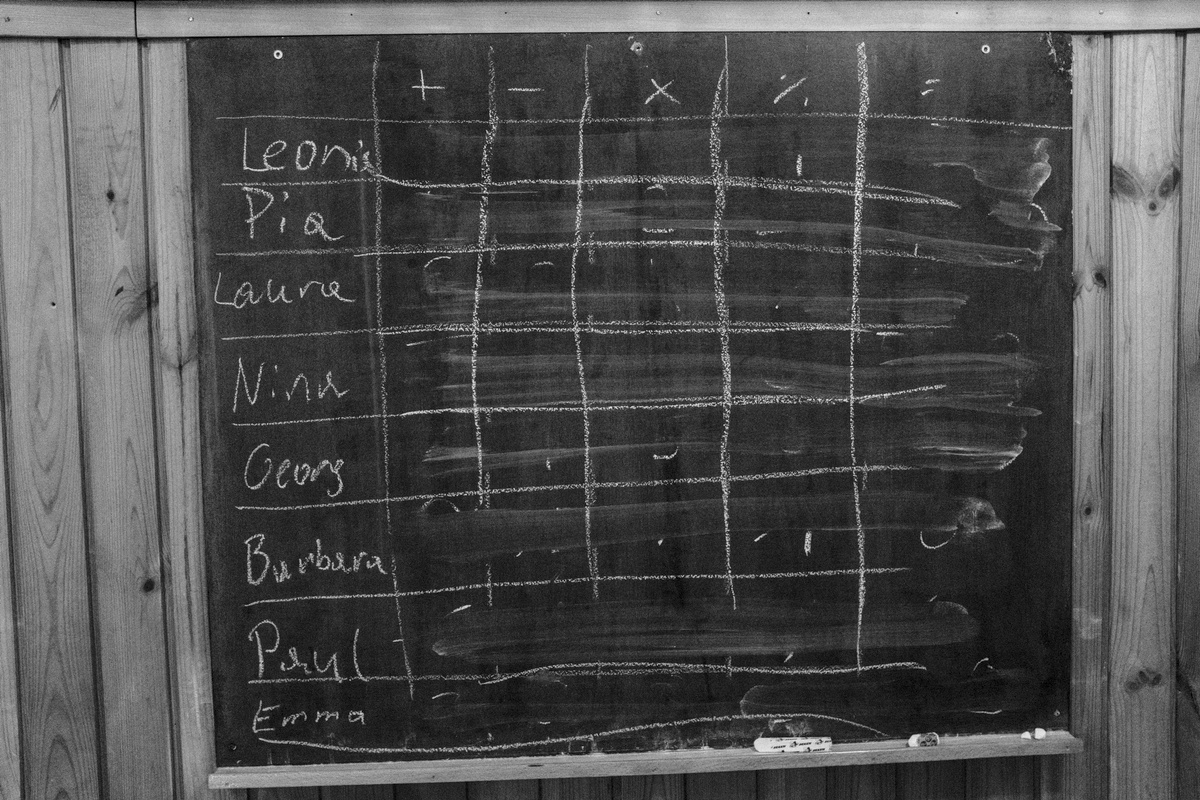 + − × ٪ =
Leonie
Pia
Laura
Nina
Georg
Barbara
Paul
Emma